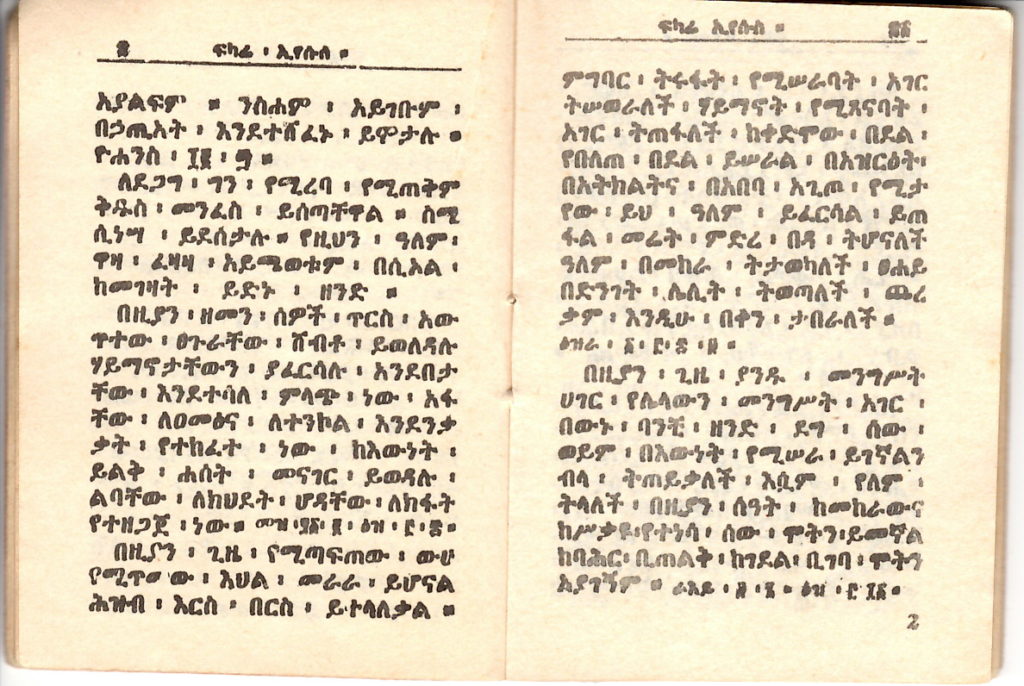 ፪ ፍካሬ ፡ ኢየሱስ ።
አያልፍም ። ንስሐም ፡ አይገቡም ፡
በኃጢአት ፡ እንደተሸፈኑ ፡ ይሞታሉ ።
ዮሐንስ ፡ ፲፪ ፡ ፵ ።
ለደጋግ ፡ ግን ፡ የሚረባ ፡ የሚጠቅም
ቅዱስ ፡ መንፈስ ፡ ይሰጣቸዋል ። ስሜ
ሲነሣ ፡ ይደሰታሉ ። የዚህን ፡ ዓለም ፡
ዋዛ ፡ ፈዛዛ ፡ አይጫወቱም ፡ በሲኦል ፡
ከመገዛት ፡ ይድኑ ፡ ዘንድ ።
በዚያን ፡ ዘመን ፡ ሰዎች ፡ ጥርስ ፡ አው
ጥተው ፡ ፀጉራቸው ፡ ሸብቶ ፡ ይወለዳሉ
ሃይማኖታቸውን ፡ ያፈርሳሉ ፡ አንደበታ
ቸው ፡ እንደተሳለ ፡ ምላጭ ፡ ነው ፡ አፋ
ቸው ፡ ለዐመፅና ፡ ለተንኮል ፡ እንደንቃ
ቃት ፡ የተከፈተ ፡ ነው ፡ ከእውነት ፡
ይልቅ ፡ ሐሰት ፡ መናገር ፡ ይወዳሉ ፡
ልባቸው ፡ ለክህደት ፡ ሆዳቸው ፡ ለክፋት
የተዘጋጀ ፡ ነው ። መዝ ፡
በዚያን ፡ ጊዜ ፡ የሚጣፍጠው ፡ ውሀ
የሚጥመው ፡ እህል ፡ መራራ ፡ ይሆናል
ሕዝብ ፡ እርስ ፡ በርስ ፡ ይተላለቃል ።
ፍካሬ ኢየሱስ ።
ምግባር ፡ ትሩፋት ፡ የሚሠራባት ፡ አገር
ትሠወራለች ፡ ሃይማኖት ፡ የሚጸናባት ፡
አገር ፡ ትጠፋለች ፡ ከቀድሞው ፡ በደል ፡
የበለጠ ፡ በደል ፡ ይሠራል ፡ በአዝርዕት ፡
በአትክልትና ፡ በአበባ ፡ አጊጦ ፡ የሚታ
የው ፡ ይህ ፡ ዓለም ፡ ይፈርሳል ፡ ይጠ
ፋል ፡ መሬት ፡ ምድረ ፡ በዳ ፡ ትሆናለች
ዓለም ፡ በመከራ ፡ ትታወካለች ፡ ፀሐይ
በድንገት ፡ ሌሊት ፡ ትወጣለች ፡ ጨረ
ቃም ፡ እንዲሁ ፡ በቀን ፡ ታበራለች ።
ዕዝራ ፡
በዚያን ፡ ጊዜ ፡ ያንዱ ፡ መንግሥት
ሀገር ፡ የሌላውን ፡ መንግሥት ፡ አገር ፡
በውኑ ፡ ባንቺ ፡ ዘንድ ፡ ደግ ፡ ሰው ፡
ወይም ፡ በእውነት ፡ የሚሠራ ፡ ይገኛልን
ብላ ፡ ትጠይቃለች ፡ እሷም ፡ የለም ፡
ትላለች ፡ በዚያን ፡ ሰዓት ፡ ከመከራውና
ከሥቃዩ ፡ የተነሳ ፡ ሰው ፡ ሞትን ፡ ይመኛል
ከባሕር ፡ ቢጠልቅ ፡ ከገደል ፡ ቢገባ ፡ ሞትን
አያገኝም ። ራእይ ፡ ፱ ፡ ፮ ።
2